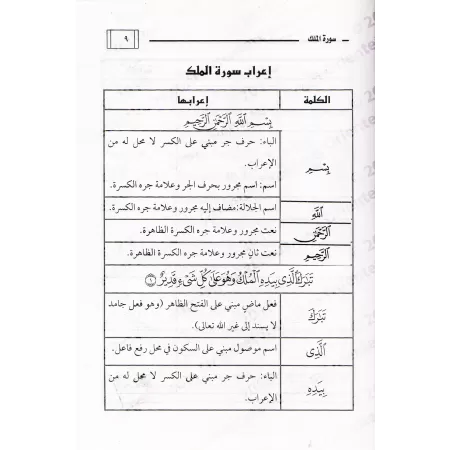 سورة الملك
٩
إعراب سورة الملك
الكلمة
إعرابها
بِسْمِ اللَّهِ الرَّحْمَٰنِ الرَّحِيمِ
بِسْمِ
الباء: حرف جر مبني على الكسر لا محل له من
الإعراب.
اسم: اسم مجرور بحرف الجر وعلامة جره الكسرة.
اللَّهِ
اسم الجلالة: مضاف إليه مجرور وعلامة جره الكسرة.
الرَّحْمَٰنِ
نعت مجرور وعلامة جره الكسرة الظاهرة.
الرَّحِيمِ
نعت ثانٍ مجرور وعلامة جره الكسرة الظاهرة.
تَبَارَكَ الَّذِي بِيَدِهِ الْمُلْكُ وَهُوَ عَلَىٰ كُلِّ شَيْءٍ قَدِيرٌ ١
تَبَارَكَ
فعل ماضٍ مبني على الفتح الظاهر (وهو فعل جامد
لا يسند إلى غير الله تعالى).
الَّذِي
اسم موصول مبني على السكون في محل رفع فاعل.
بِيَدِهِ
الباء: حرف جر مبني على الكسر لا محل له من
الإعراب.